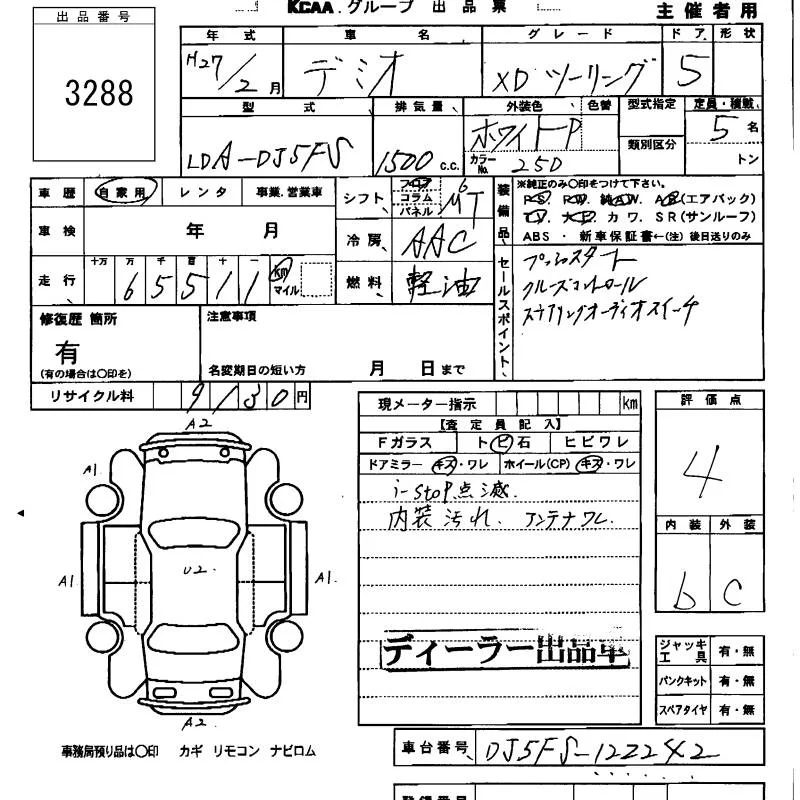 KCAA.グループ 出品票
主催者用
出品番号
3288
年式 車名 グレード ドア 形状
H27/2月 デミオ XD ツーリング 5
型式 排気量 外装色 色替 型式指定 定員・積載
LDA-DJ5FS 1500 c.c. ホワイトP カラーNo. 25D 類別区分 5名 トン
車歴 自家用 レンタ 事業.営業車
車検 年 月
走行 十万 万 千 百 十 一 km マイル
65511
シフト フロア コラム パネル 6MT
冷房 AAC
燃料 軽油
装備品
※純正のみ〇印をつけて下さい。
PS. PW. 純AW. AB(エアバック)
TV. ナビ. カワ. SR(サンルーフ)
ABS・新車保証書←(注)後日送りのみ
セールスポイント
プッシュスタート
クルーズコントロール
ステアリングオーディオスイッチ
修復歴 箇所
有
(有の場合は〇印を)
注意事項
名変期日の短い方 月 日まで
リサイクル料 9130円
現メーター指示 km
【査定員記入】
Fガラス トビ石 ヒビワレ
ドアミラー キズ・ワレ ホイール(CP) キズ・ワレ
i-stop点滅.
内装汚れ. アンテナワレ.
ディーラー出品車
評価点
4
内装 外装
b C
ジャッキ工具 有・無
パンクキット 有・無
スペアタイヤ 有・無
A2
A1
A1.
U2.
A1.
A2
事務局預り品は〇印 カギ リモコン ナビロム
車台番号 DJ5FS-122242
登録番号